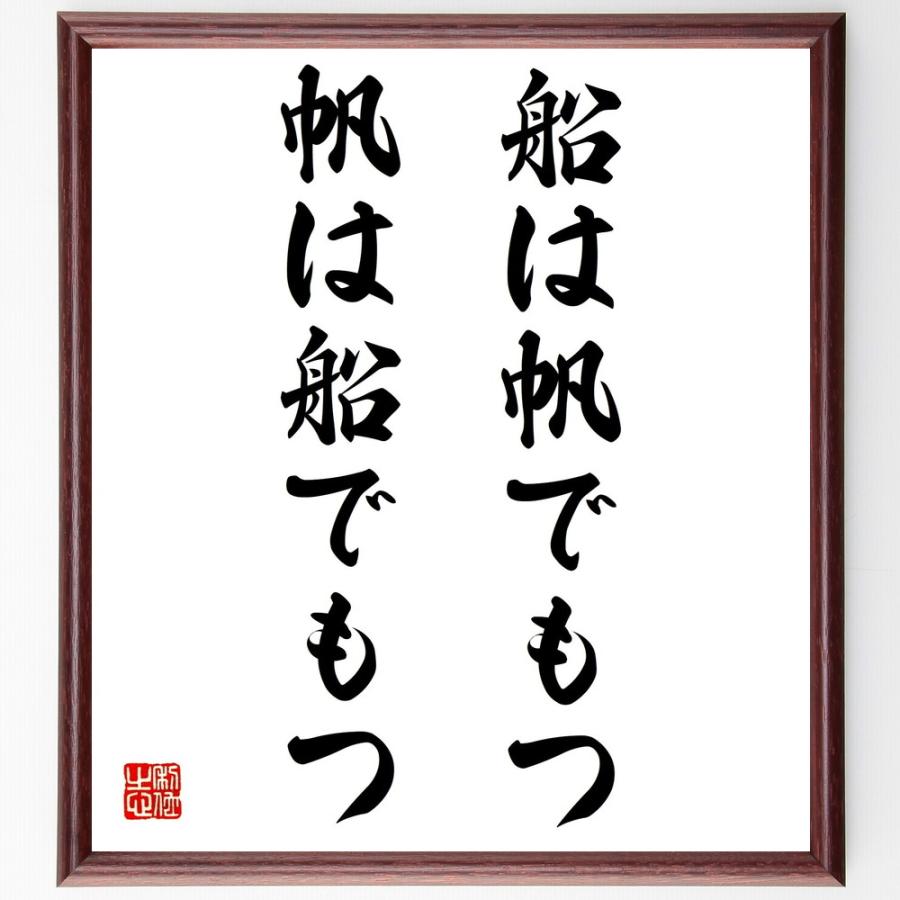 船は帆でもつ
帆は船でもつ